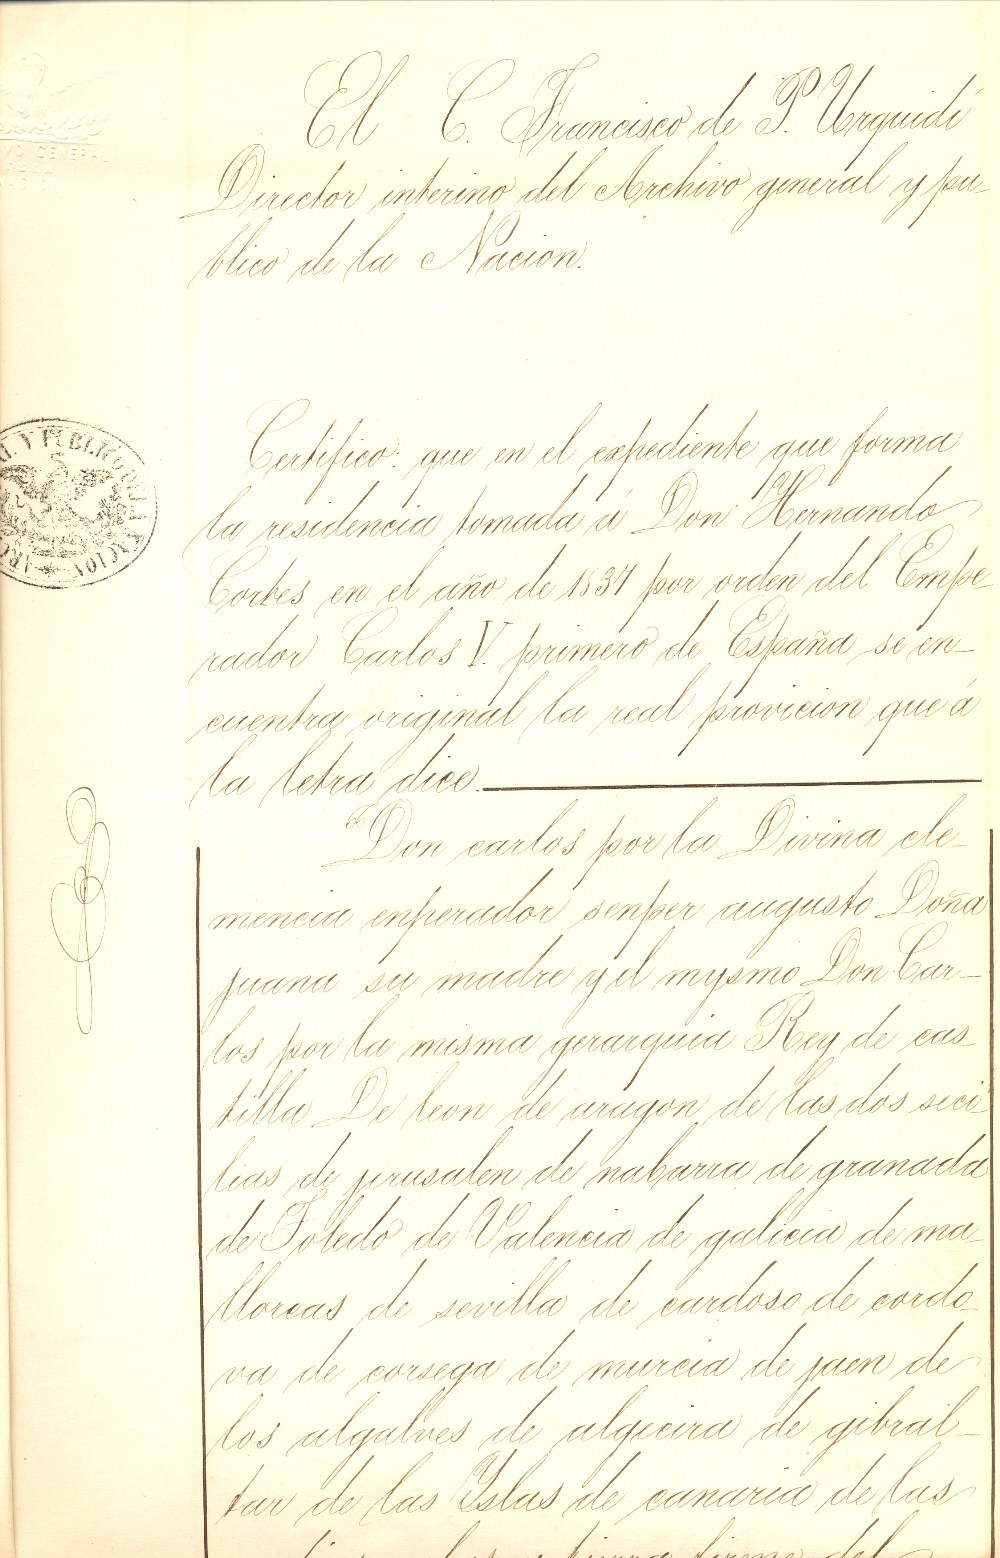 El C. Francisco de P. Urquidi
Director interino del Archivo general y pú-
blico de la Nacion.
Certifico: que en el expediente que forma
la residencia tomada á Don Hernando
Cortes en el año de 1837 por orden del Empe
rador Carlos V. primero de España se en-
cuentra original la real provicion que á
la letra dice.
"Don carlos por la Divina cle-
mencia enperador senper augusto Doña
juana su madre y el mysmo Don Car-
los por la misma gerarquia Rey de cas-
tilla De leon de aragon de las dos seci
lias de jerusalen de nabarra de granada
de Toledo de Valencia de galicia de ma-
llorcas de sevilla de cardoso de cordo-
va de corsega de murcia de jaen de
los algalves de algecira de gibral-
tar de las Yslas de canaria de las
tierra firme del
Y PUBLICO DE LA NACION